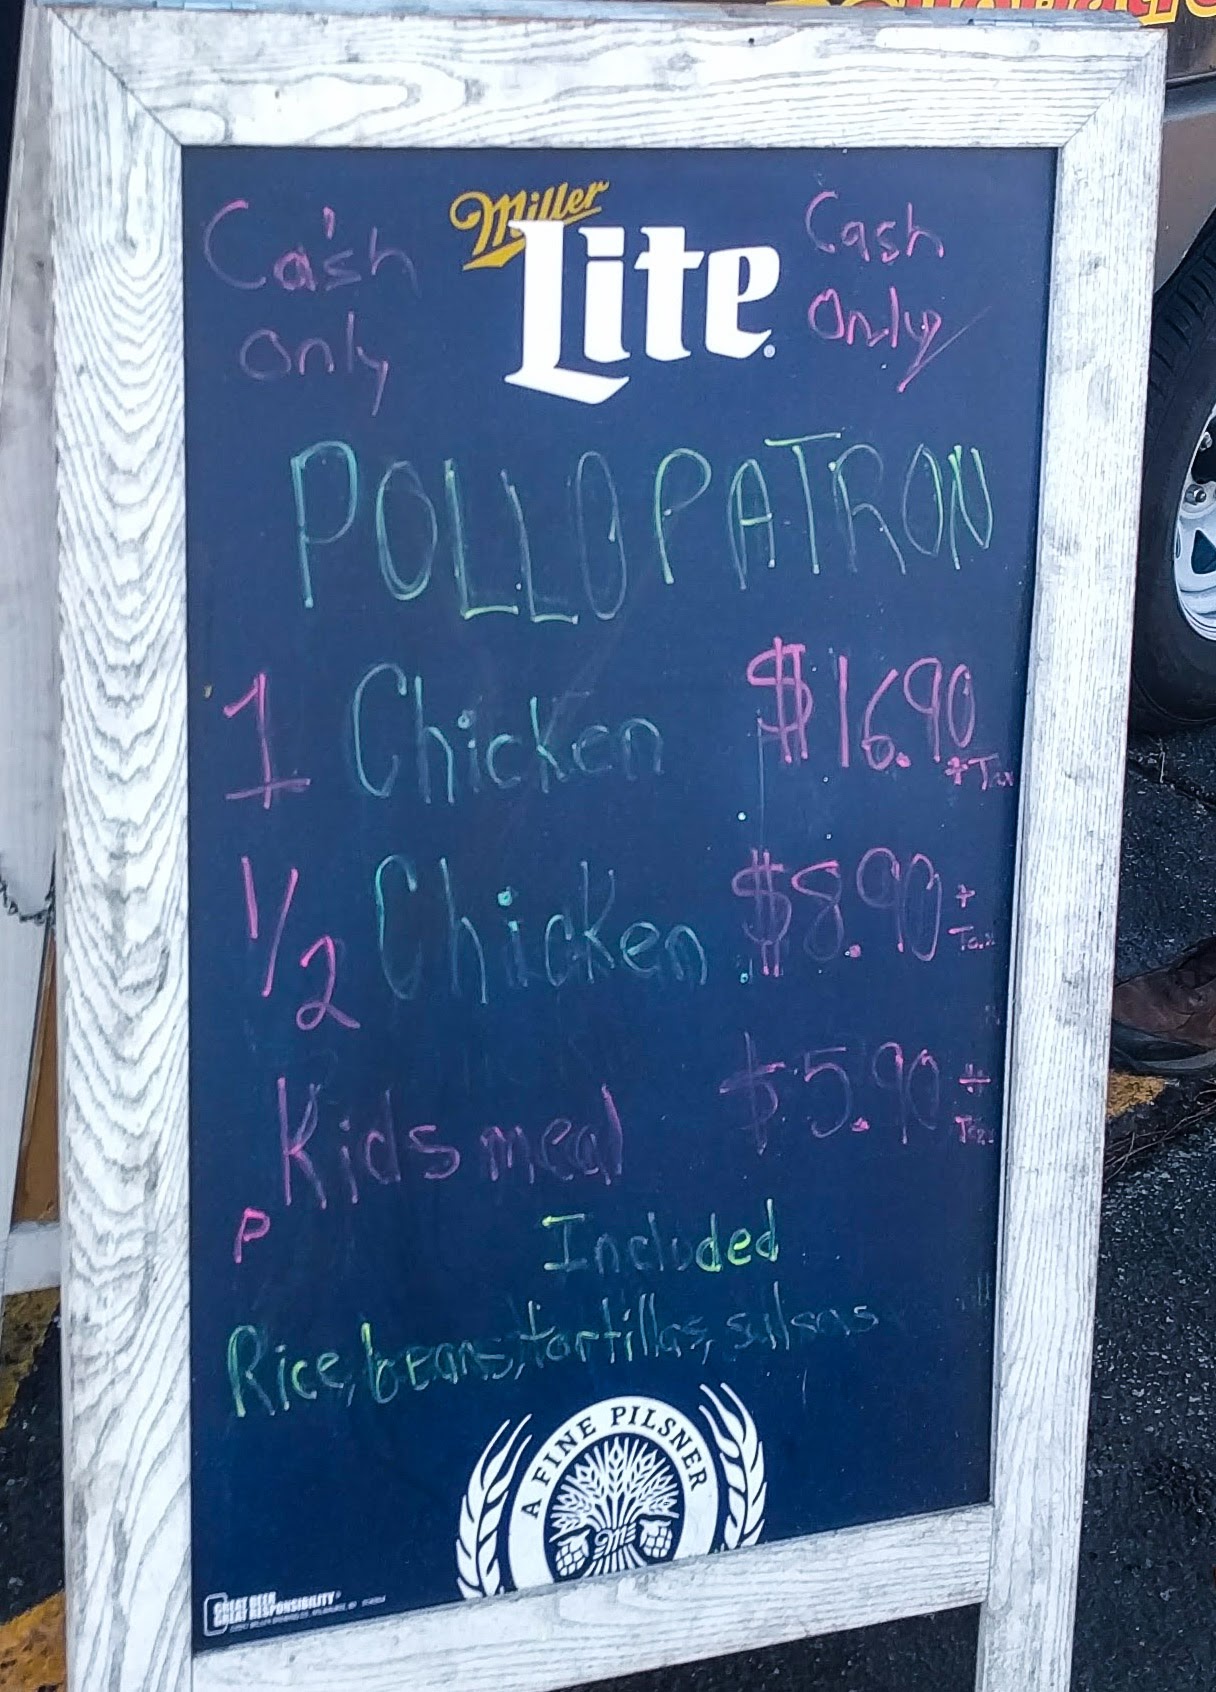 Cash only
Miller
Lite
Cash Only
POLLO PATRON
1 Chicken $16.90 + Tax
1/2 Chicken $8.90 + Tax
Kids meal $5.90 + Tax
P
Included
Rice, beans, tortillas, salsas
A FINE PILSNER
M
GREAT BEER
GREAT RESPONSIBILITY